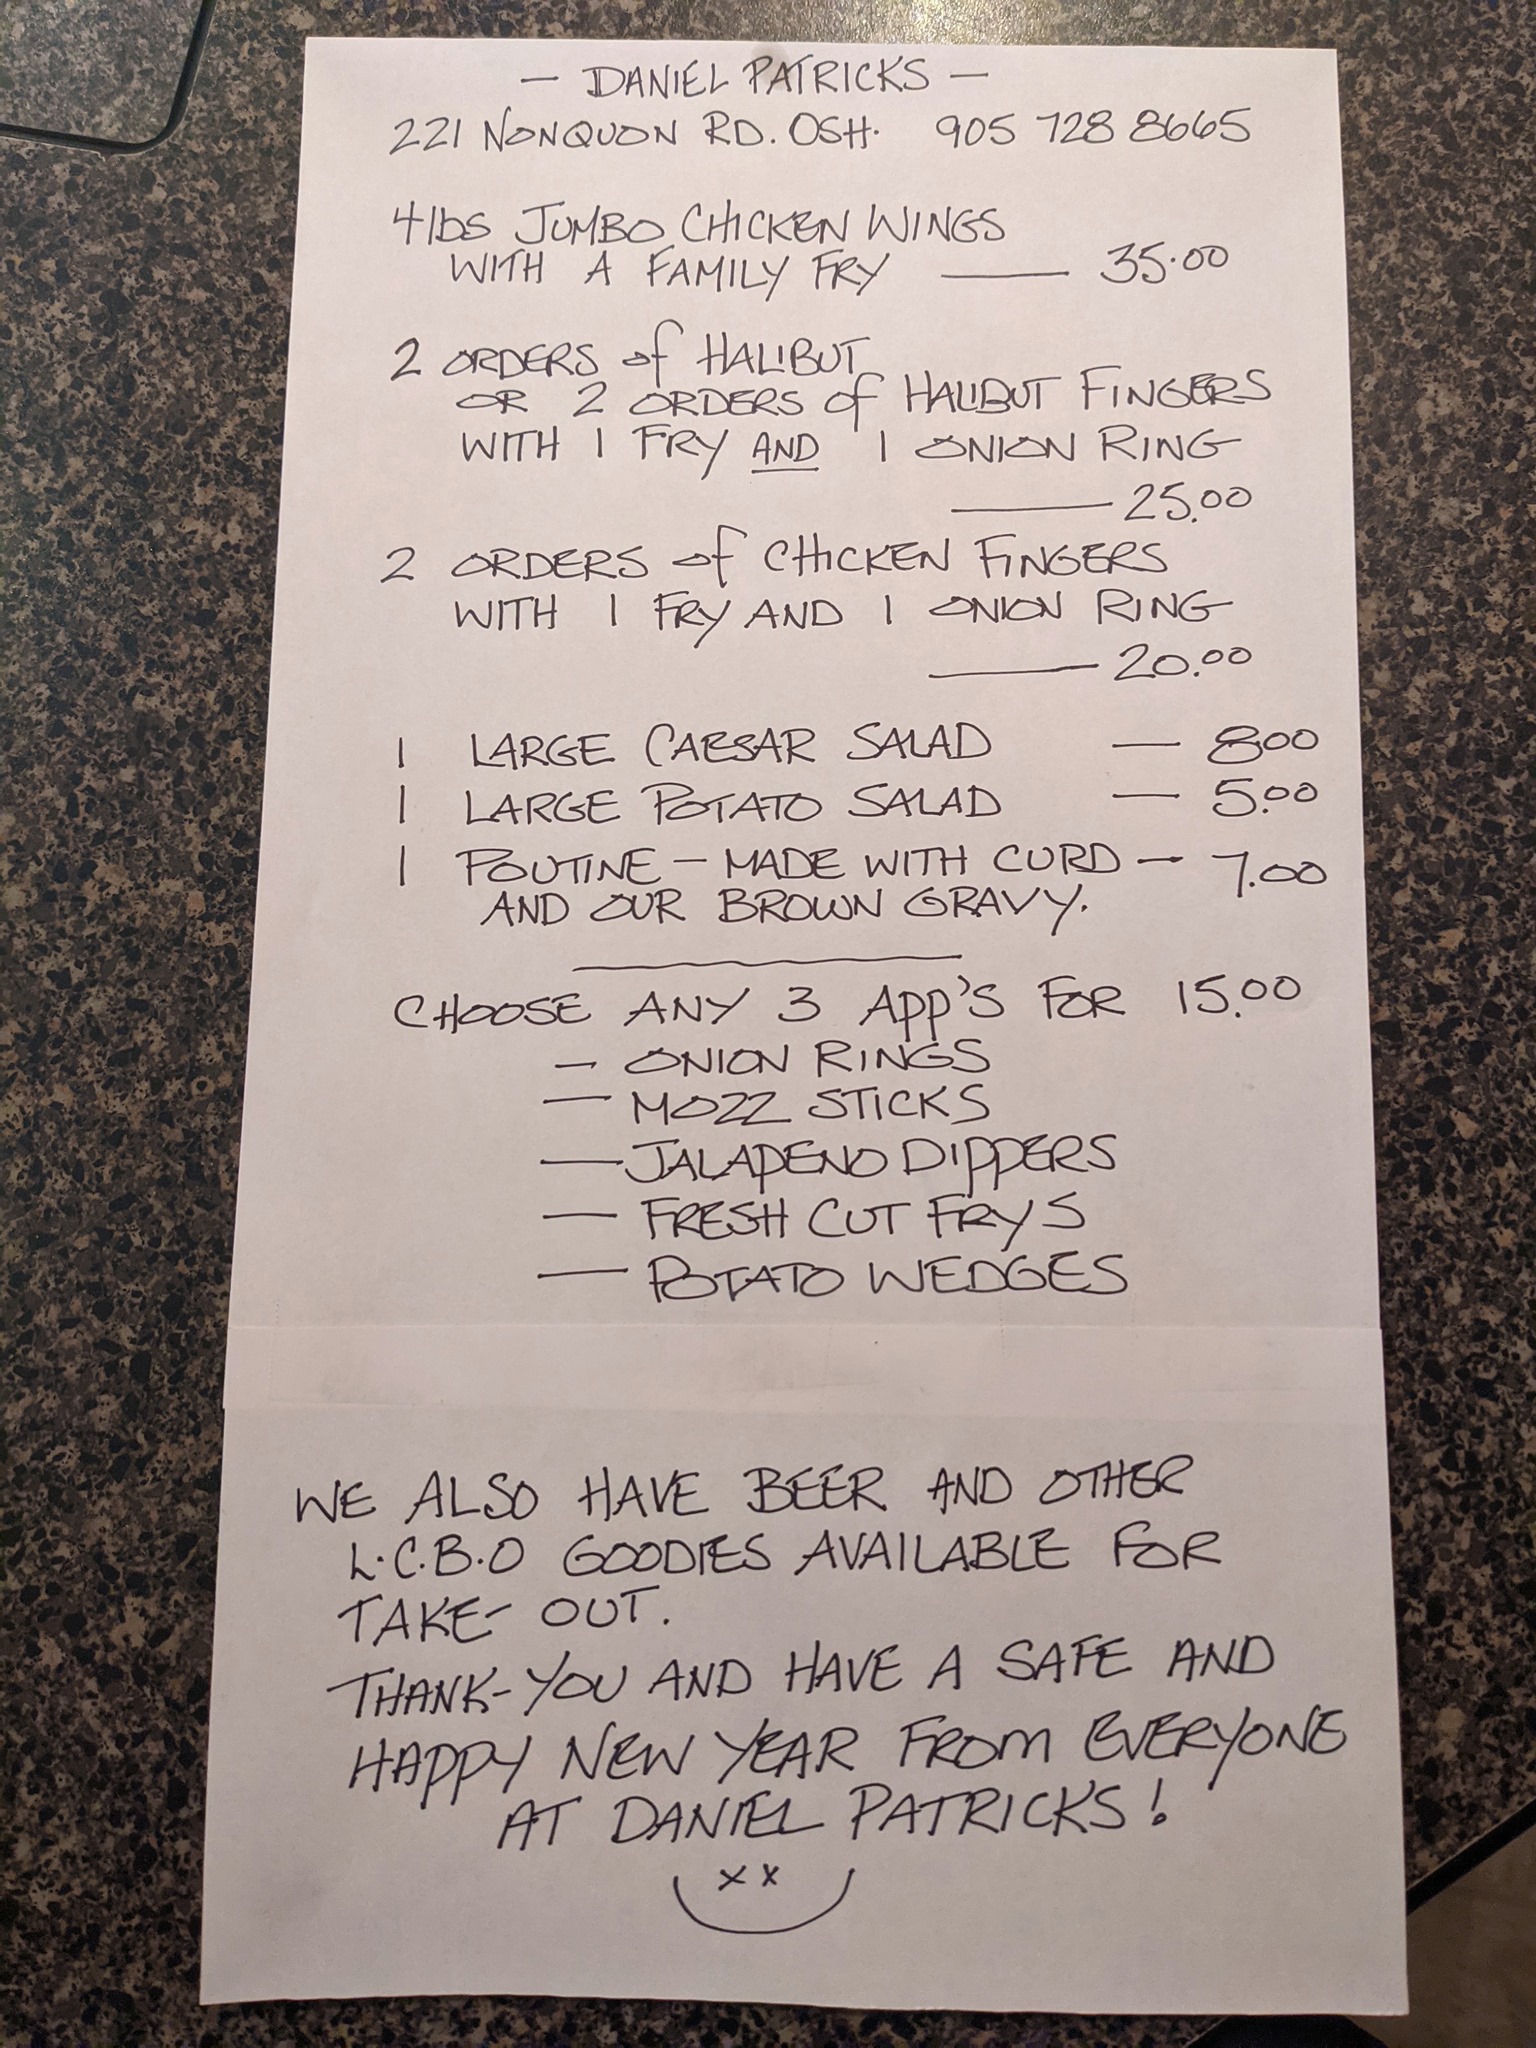 — DANIEL PATRICKS —
221 NONQUON RD. OSH. 905 728 8665
4 lbs JUMBO CHICKEN WINGS
WITH A FAMILY FRY —— 35.00
2 ORDERS of HALIBUT
OR 2 ORDERS of HALIBUT FINGERS
WITH 1 FRY AND 1 ONION RING
—— 25.00
2 ORDERS of CHICKEN FINGERS
WITH 1 FRY AND 1 ONION RING
—— 20.00
1 LARGE CAESAR SALAD — 8.00
1 LARGE POTATO SALAD — 5.00
1 POUTINE — MADE WITH CURD — 7.00
AND OUR BROWN GRAVY.
CHOOSE ANY 3 APP'S FOR 15.00
— ONION RINGS
— MOZZ STICKS
— JALAPENO DIPPERS
— FRESH CUT FRYS
— POTATO WEDGES
WE ALSO HAVE BEER AND OTHER
L.C.B.O GOODIES AVAILABLE FOR
TAKE-OUT.
THANK-YOU AND HAVE A SAFE AND
HAPPY NEW YEAR FROM EVERYONE
AT DANIEL PATRICKS!